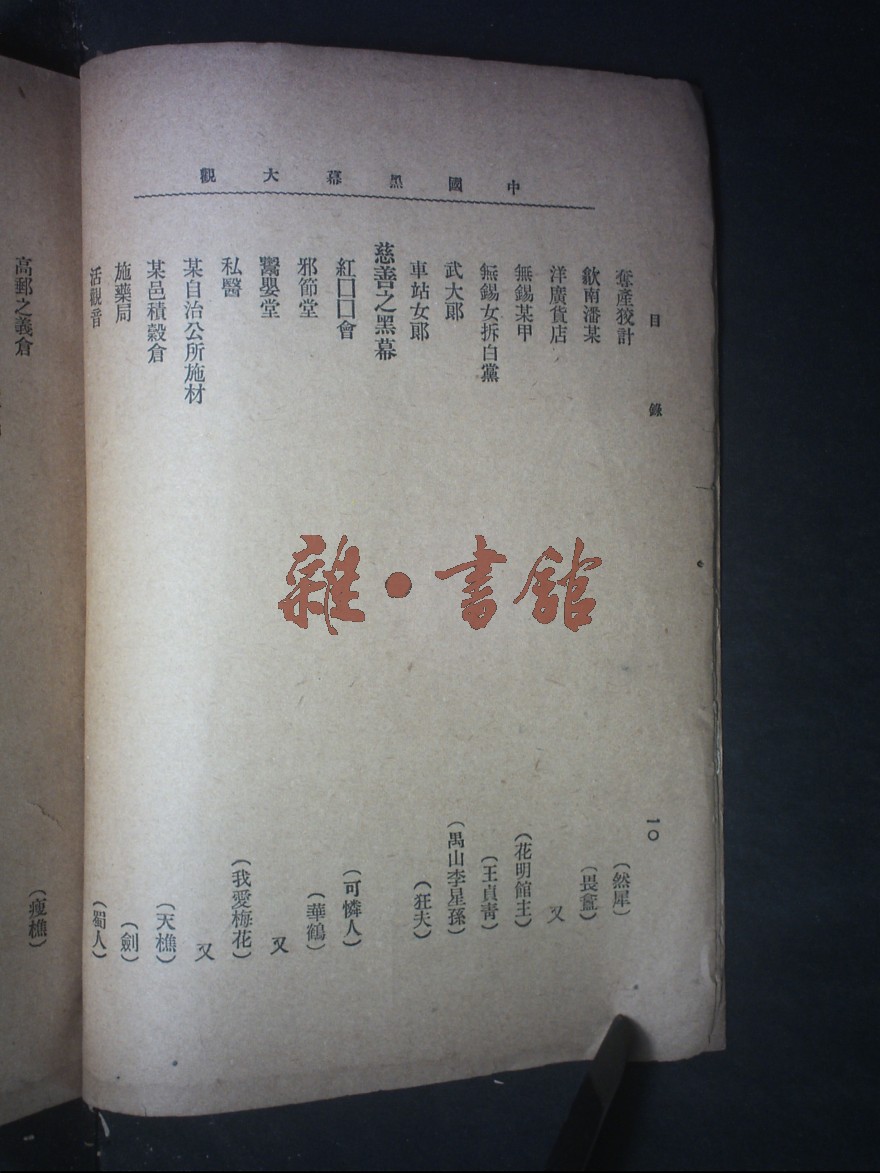 中國黑幕大觀
目錄 一〇
奪產狡計 (然犀)
歙南潘某 (畏廬)
洋廣貨店 又
無錫某甲 (花明館主)
無錫女拆白黨 (王貞靑)
武大郞 (禺山李星孫)
車站女郞 (狂夫)
慈善之黑幕
紅囗囗會 (可憐人)
邪節堂 (華鶴)
鬻嬰堂 又
私醫 (我愛梅花)
某自治公所施材 又
某邑積穀倉 (天樵)
施藥局 (劍)
活觀音 (蜀人)
高郵之義倉 (瘦樵)
雜·書館